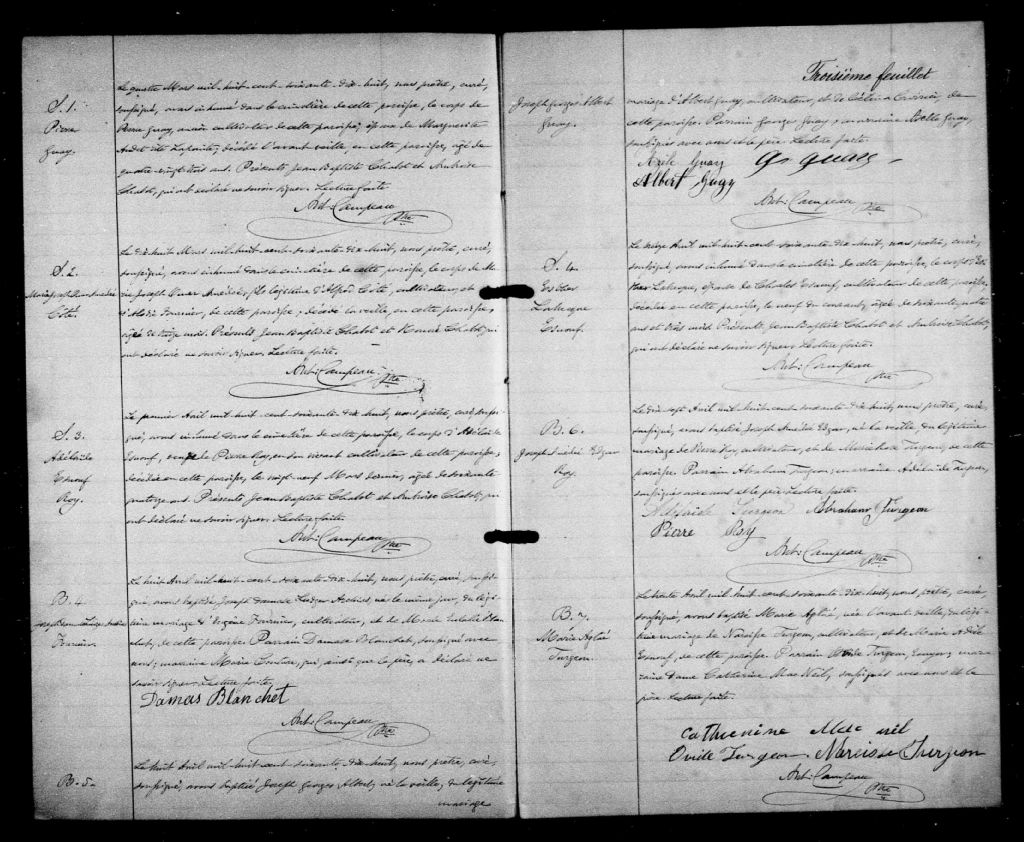 S. 1.
Pierre
Guay.
Le quatre Mars mil-huit-cent-soixante-dix-huit, nous prêtre, curé,
soussigné, avons inhumé dans le cimetière de cette paroisse, le corps de
Pierre Guay, ancien cultivateur de cette paroisse, époux de Marguerite
Audet dite Lapointe, décédé l'avant veille, en cette paroisse, âgé de
quatre-vingt trois ans. Présents Jean Baptiste Chabot et Ambroise
Chabot, qui ont déclaré ne savoir signer. Lecture faite.
Ant: Campeau
Ptre
S. 2.
Côté.
Le dix huit Mars mil-huit-cent-soixante-dix-huit, nous prêtre, curé,
soussigné, avons inhumé dans le cimetière de cette paroisse, le corps de Ma-
rie Joseph Omer Amédée, fils légitime d'Alfred Côté, cultivateur, et
d'Elodie Fournier, de cette paroisse, décédé la veille, en cette paroisse,
âgé de treize mois. Présents Jean Baptiste Chabot et Côté, qui
ont déclaré ne savoir signer. Lecture faite.
Ant: Campeau
Ptre
S. 3.
Adélaïde
Esnouf
Roy.
Le premier Avril mil-huit-cent-soixante-dix-huit, nous prêtre, curé, soussi-
gné, avons inhumé dans le cimetière de cette paroisse, le corps d'Adélaïde
Esnouf, veuve de Pierre Roy, en son vivant cultivateur de cette paroisse,
décédée en cette paroisse, le vingt-neuf Mars dernier, âgée de soixante
quatorze ans. Présents Jean Baptiste Chabot et Ambroise Chabot, qui
ont déclaré ne savoir signer. Lecture faite.
Ant: Campeau
Ptre
B. 4.
Fournier.
Le huit Avril mil-huit-cent-soixante-dix-huit, nous prêtre, curé, soussi-
gné, avons baptisé Joseph Damase Ludger Archias, né le même jour, du légi-
time mariage d' Fournier, cultivateur, et de Marie Eulalie Blan-
chet, de cette paroisse. Parrain Damase Blanchet, soussigné avec
nous; marraine Marie Couture, qui, ainsi que le père, a déclaré ne
savoir signer. Lecture faite.
Damas Blanchet
Ant: Campeau
Ptre
B. 5.
Le huit Avril mil-huit-cent-soixante-dix-huit, nous prêtre, curé,
soussigné, avons baptisé Joseph Georges Albert, né la veille, du légitime
mariage
Troisième feuillet
Joseph Georges Albert
Guay.
mariage d'Albert Guay, cultivateur, et de Célina, de
cette paroisse. Parrain George Guay, marraine Adèle Guay,
soussignés avec nous et le père. Lecture faite.
Adèle Guay
Albert Guay
Ant: Campeau
Ptre
S. 4.
Esther
Labecque
Esnouf.
Le onze Avril mil-huit-cent-soixante-dix-huit, nous prêtre, curé,
soussigné, avons inhumé dans le cimetière de cette paroisse, le corps d'Es-
ther Labecque, épouse de Charles Esnouf, cultivateur de cette paroisse,
décédée en cette paroisse, le neuf du courant, âgée de soixante-quatre
ans et trois mois. Présents, Jean Baptiste Chabot et Ambroise Chabot,
qui ont déclaré ne savoir signer. Lecture faite.
Ant: Campeau
Ptre
B. 6.
Joseph Amédée Edgar
Roy.
Le dix sept Avril mil-huit-cent-soixante-dix-huit, nous prêtre, curé,
soussigné, avons baptisé Joseph Amédée Edgar, né la veille du légitime
mariage de Pierre Roy, cultivateur, et de Turgeon, de cette
paroisse. Parrain Abraham Turgeon, marraine Adélaïde Turgeon,
soussignés avec nous et le père. Lecture faite.
Adelaide Turgeon Abraham Turgeon
Pierre Roy
Ant: Campeau
Ptre
B. 7.
Marie Aglaé
Turgeon.
Le trente Avril mil-huit-cent-soixante-dix-huit, nous prêtre, curé,
soussigné, avons baptisé Marie Aglaé, née l'avant veille, du légi-
time mariage de Narcisse Turgeon, cultivateur, et de Marie Adèle
Esnouf, de cette paroisse. Parrain Ovide Turgeon, mar-
raine dame Catherine MacNeil, soussignés avec nous et le
père. Lecture faite.
Catherine Mac neil
Ovide Turgeon Narcisse Turgeon
Ant: Campeau
Ptre